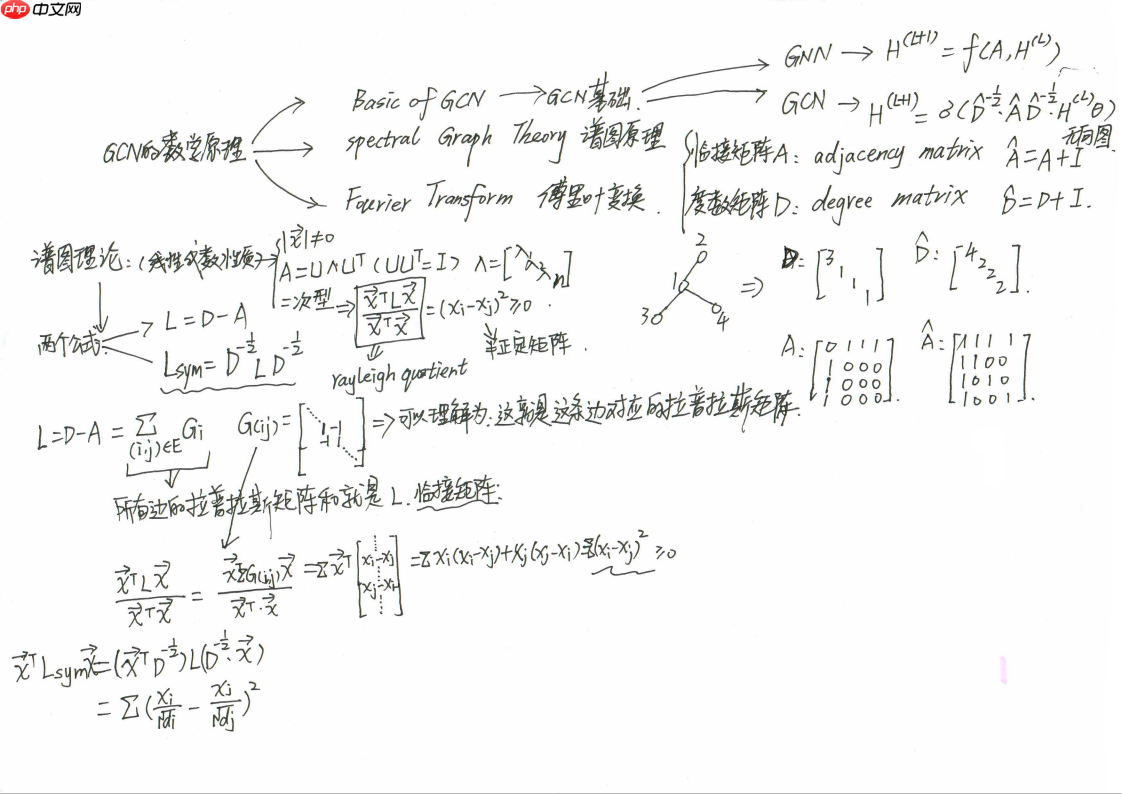 php 中文网
GNN → H^(L+1) = f(A, H^(L))
Basic of GCN → GCN基础.
GCN → H^(L+1) = δ(D̂^-½·ÂD̂^-½·H^(L)θ)
GCN的数学原理
spectral Graph Theory 谱图原理
无向图
临接矩阵A: adjacency matrix Â=A+I
Fourier Transform 傅里叶变换.
度数矩阵D: degree matrix D̂=D+I.
谱图理论: (线性代数性质) →
|x⃗|≠0
A=U∧U^T (UU^T=I) λ=[λ₁ λ₂ λn]
二次型 ⇒ x⃗^T L x⃗ / x⃗^T x⃗ = (xi-xj)²≥0.
半正定矩阵.
rayleigh quotient
两个公式:
L=D-A
Lsym=D^-½ L D^-½
2
1
3
4
⇒
D: [3 1 1 1]
D̂: [4 2 2 2].
A: [0 1 1 1
1 0 0 0
1 0 0 0
1 0 0 0].
Â: [1 1 1 1
1 1 0 0
1 0 1 0
1 0 0 1].
L=D-A=Σ(i,j)∈E Gi G(ij)=[1 -1 -1 1] ⇒可以理解为:这就是这条边对应的拉普拉斯矩阵.
所有边的拉普拉斯矩阵和就是L.临接矩阵:
x⃗^T L x⃗ / x⃗^T x⃗ = x⃗^T ΣG(i,j) x⃗ / x⃗^T·x⃗ = Σx⃗^T [xi-xj xj-xi] = Σxi(xi-xj)+xj(xj-xi)=Σ(xi-xj)²≥0
x⃗^T Lsym x⃗=(x⃗^T D^-½)L(D^-½·x⃗)
= Σ(xi/√di - xj/√dj)²